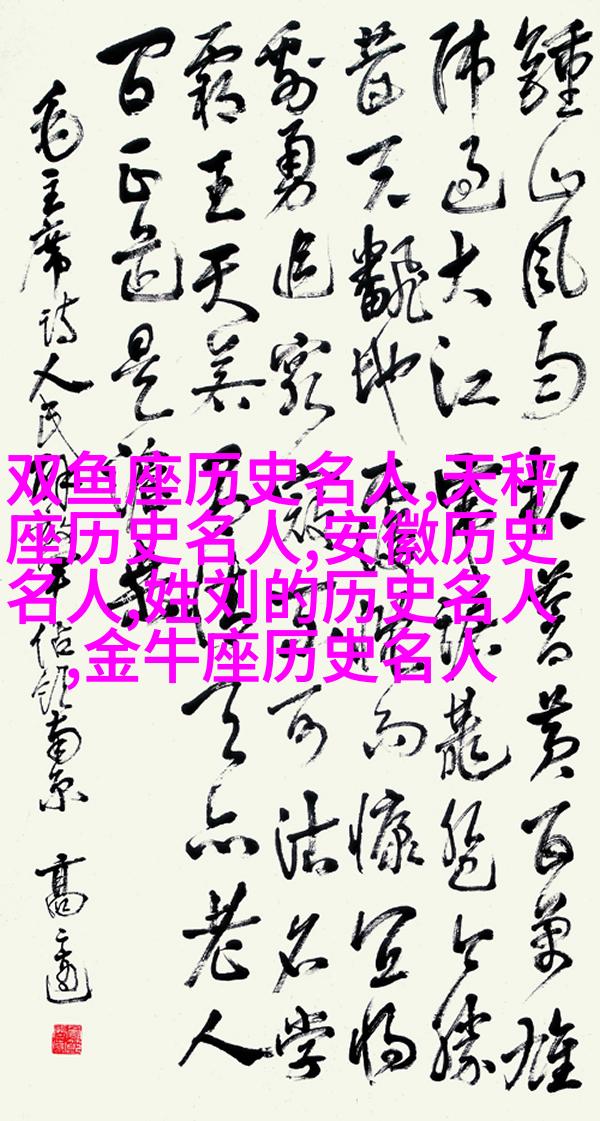 双鱼座历史名人,天秤
座历史名人,安徽历史
名人,姓刘的历史名人
,金牛座历史名人
鍾山風雨起蒼黄百萬雄
师過大江虎踞龍盤今勝
昔天翻地覆慨而慷宜將
剩勇追窮寇不可沽名學
霸王天若有情天亦老人
間正道是滄桑
毛主席詩人民解放軍佔領南京 高